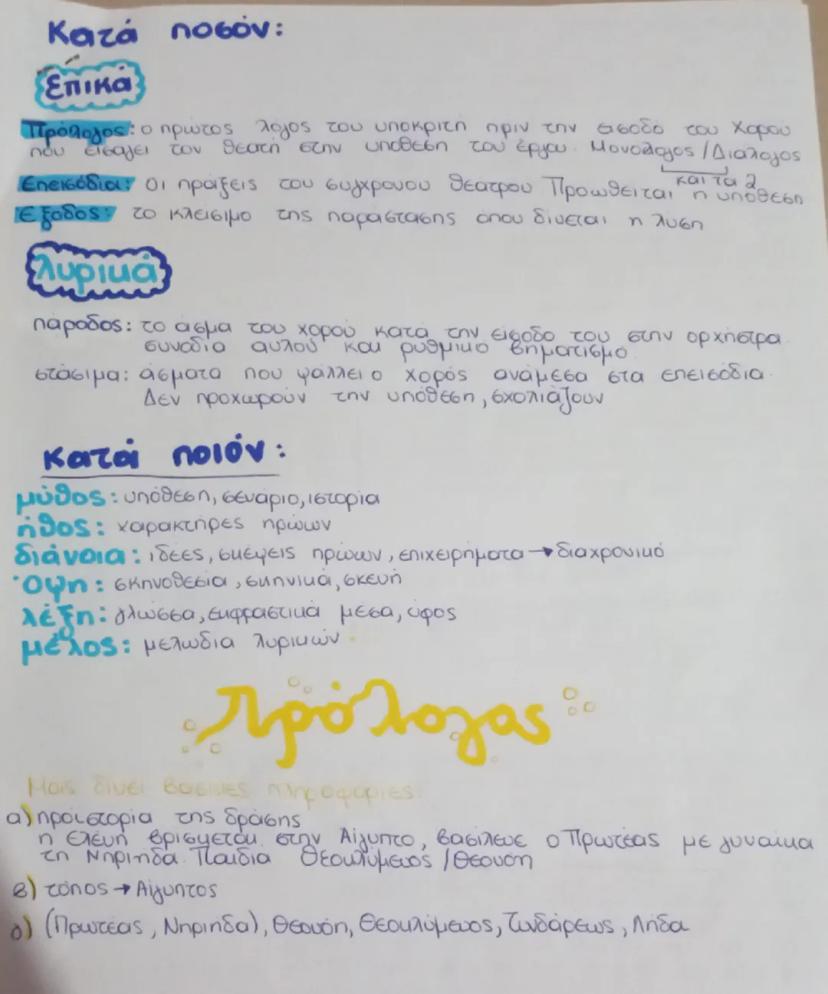 Κατά ποσόν:
Επικά
Πρόλογος: ο πρώτος λόγος του υποκριτή πριν την είσοδό του Χορού
που εισάγει τον θεατή στην υπόθεση του έργου. Μονόλογος/Διάλογος
και τα 2
Επεισόδια: Οι πράξεις του σύγχρονου θεάτρου Προωθείται η υπόθεση
Έξοδος: το κλείσιμο της παράστασης όπου δίνεται η λύση
λυρικά
πάροδος: το άσμα του χορού κατά την είσοδο του στην ορχήστρα
συνοδία αυλού και ρυθμικό βηματισμό
στάσιμα: άσματα που ψάλλει ο χορός ανάμεσα στα επεισόδια.
Δεν προχωρούν την υπόθεση, σχολιάζουν
κατά ποιόν:
μύθος: υπόθεση, σενάριο, ιστορία
ήθος: χαρακτήρες ηρώων
διάνοια: ιδέες, σκέψεις ηρώων, επιχειρήματα → διαχρονικό
Όψη: σκηνοθεσία, σκηνικά, σκευή
λέξη: γλώσσα, εκφραστικά μέσα, ύφος
μέλος: μελωδία λυρικών
Πρόλογος
Μας δίνει βασικές πληροφορίες:
α) προϊστορία της δράσης
η Ελένη βρίσκεται στην Αίγυπτο, βασίλευε ο Πρωτέας με γυναίκα
τη Νηρηίδα. Παιδιά Θεοκλύμενος/Θεονόη
β) τόπος → Αίγυπτος
γ) (Πρωτέας, Νηρηίδα), Θεονόη, Θεοκλύμενος, Τυνδάρεως, Λήδα